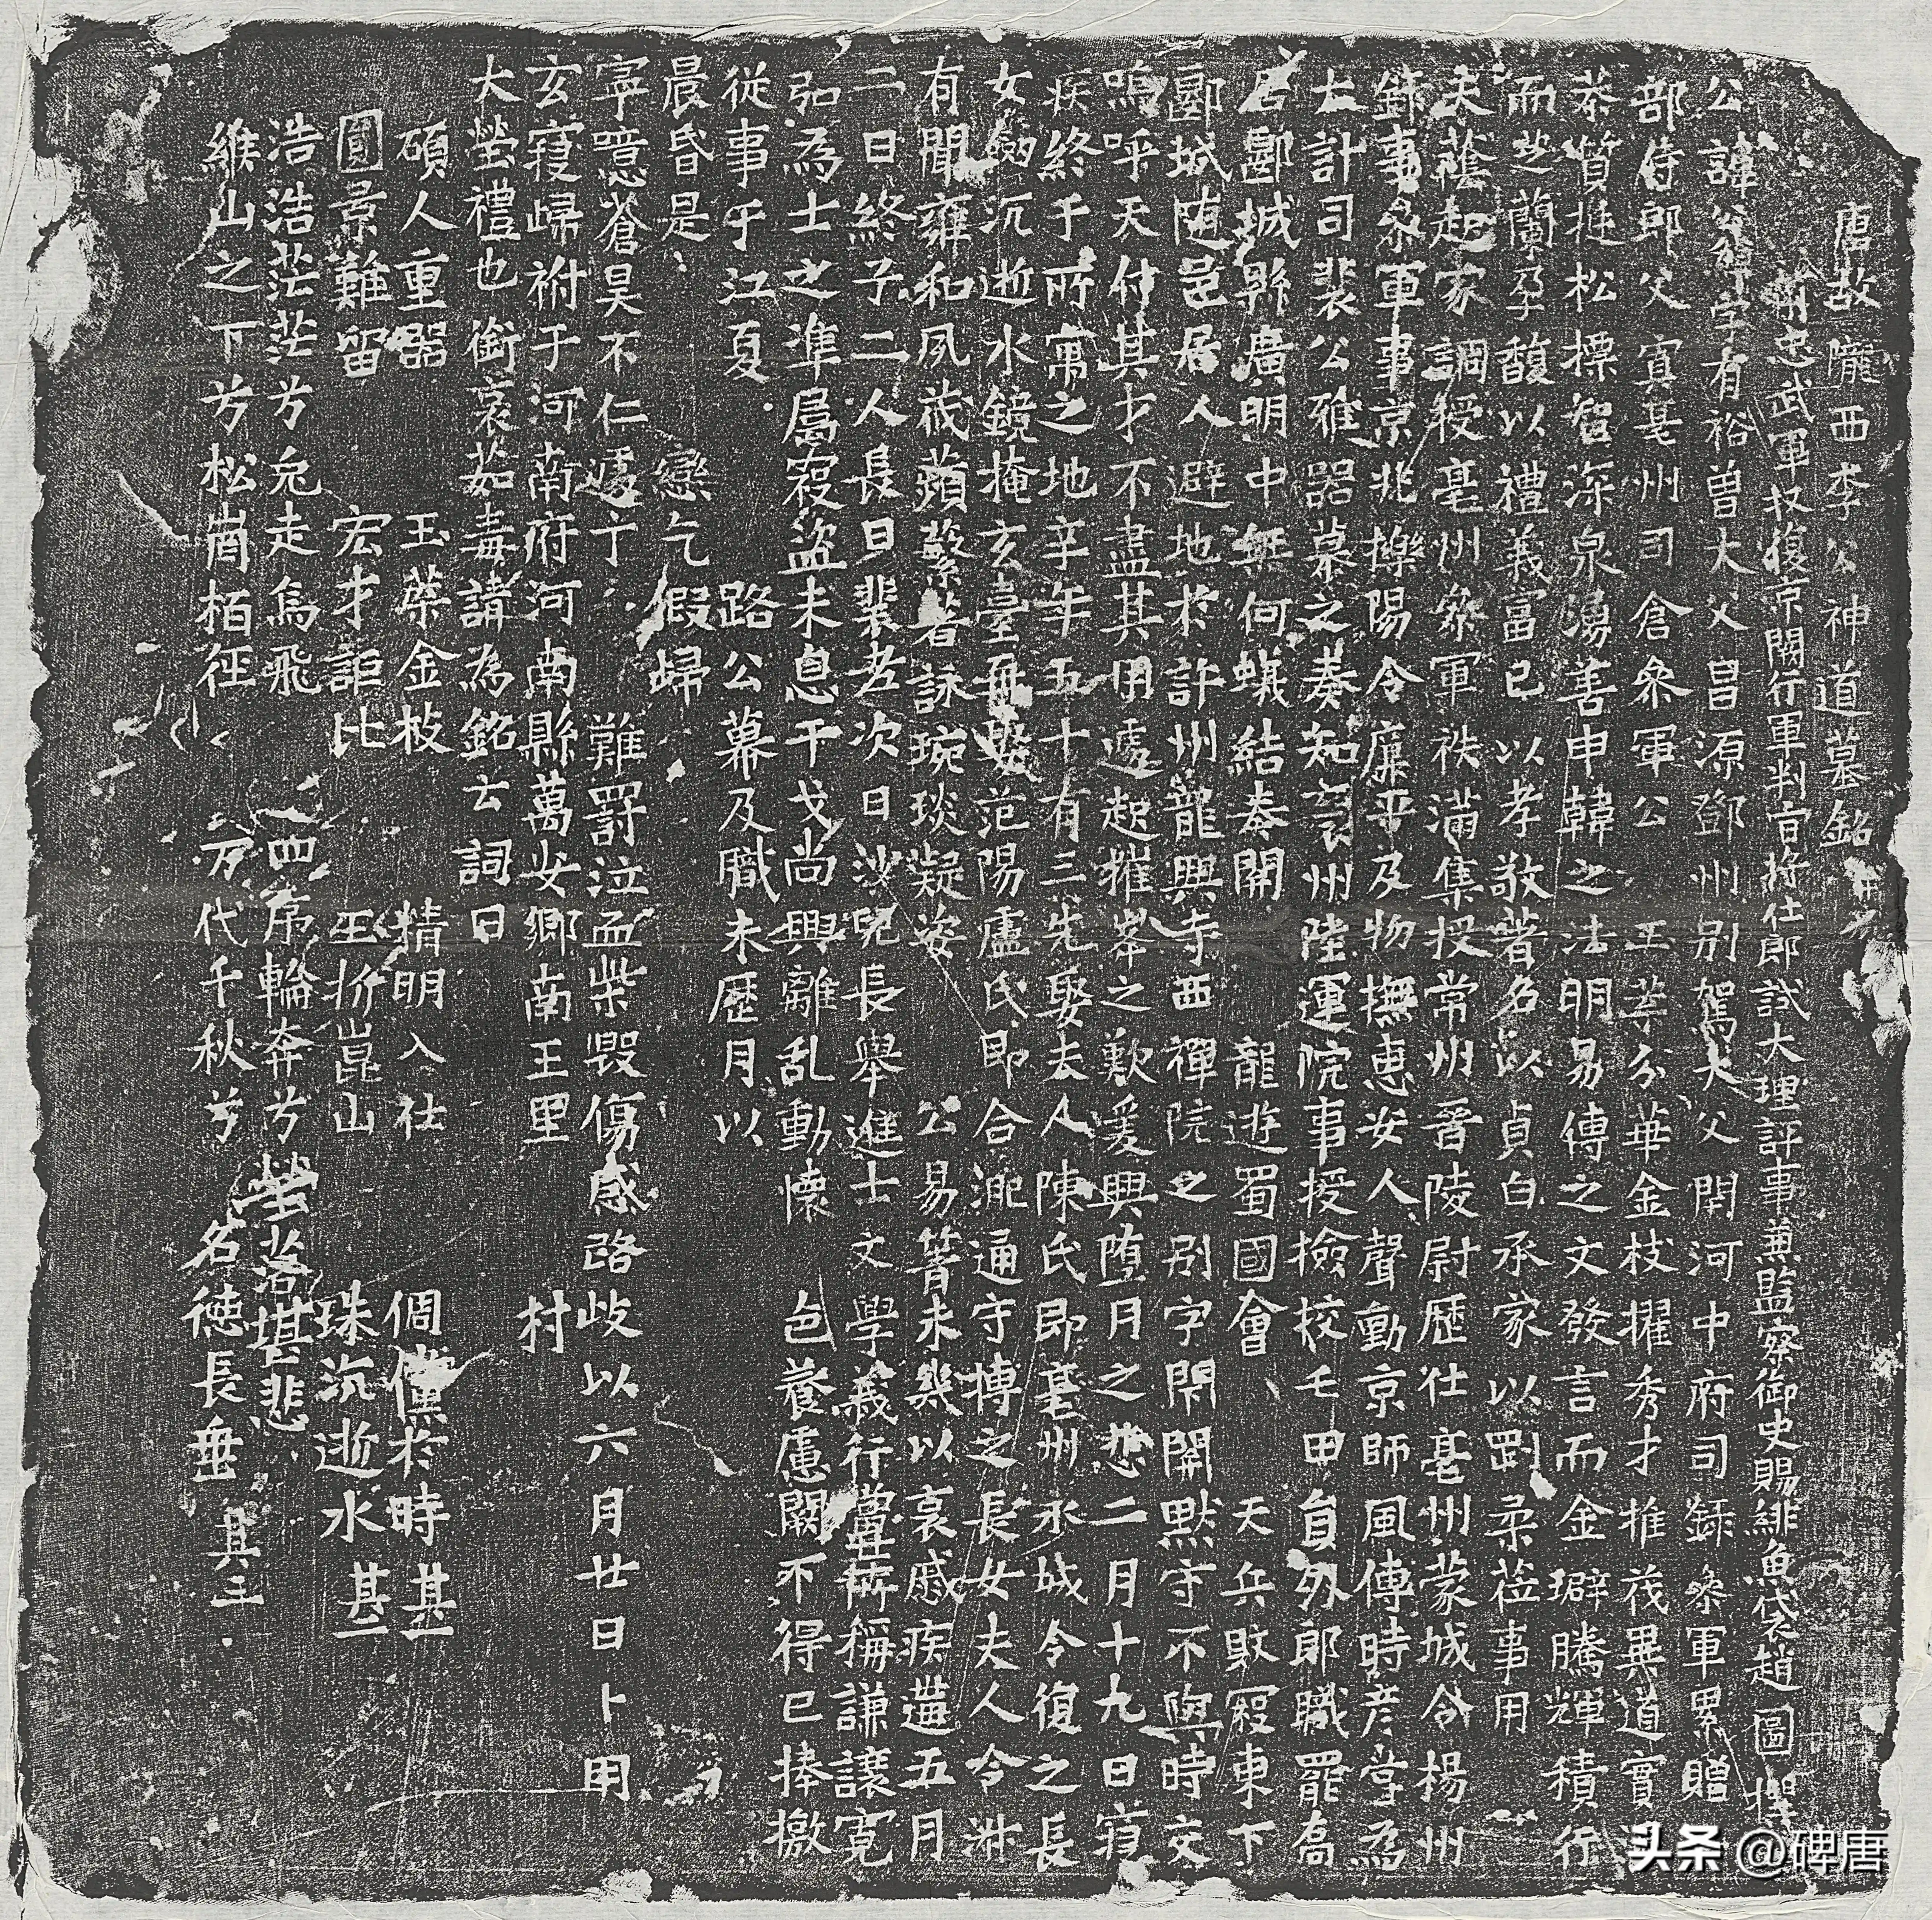 唐故隴西李公神道墓銘
前忠武軍收復京闕行軍判官將仕郎試大理評事兼監察御史賜緋魚袋趙圖撰
公諱 字有裕曾大父昌源鄧州別駕大父閑河中府司錄參軍累贈
部侍郎父寘亳州司倉參軍公 玉萼分華金枝擢秀才推茂異道實
恭質挺松摽智深泉湧善申韓之法明易傳之文發言而金璧騰輝積行
而芝蘭孕馥以禮義富己 以孝敬著名以貞白承家以剛柔莅事用
夫蔭起家調授亳州參軍秩滿集授常州晉陵尉歷仕亳州蒙城令楊州
錄事參軍事京兆櫟陽令廉平及物撫惠安人聲動京師風傳時彥掌為
大計司裴公雅器慕之奏知襄州陸運院事授撿校屯田員外郎職罷喬
居郾城縣廣明中無何蟻結秦關 龍遊蜀國會 天兵敗寇東下
郾城随邑居人避地於許州龍興寺西禪院之别字閑開默守不與時交
嗚呼天付其才不盡其用遽起摧峯之歎爰興墮月之悲二月十九日寢
疾終于所寓之地辛年五十有三先娶夫人陳氏即亳州永城令復之長
女劒沉逝水鏡掩玄臺再娶范陽盧氏即合淝通守博之長女夫人令淋
有聞雍和夙茂蘋蘩著詠琬琰凝姿 公易簀未幾以哀戚疾遘五月
二日終子二人長曰裴老次曰沙兒長舉進士文學義行當稱謙讓寬
弘為士之準屬寇盜未息干戈尚興離乱動懷 色養慮闕不得已捧檄
從事于江夏 路公幕及職未歷月以
晨昏是 戀乞假歸
寜噫蒼昊不仁遽丁 難罸泣血柴毀傷感路歧以六月廿日卜用
玄寢歸祔于河南府河南縣萬安鄉南王里 村
大塋禮也銜哀茹毒請為銘云詞曰
碩人重器 玉葉金枝 精明入仕 倜儻於時其一
圓景難留 宏才詎比 玉折崑山 珠沉逝水其二
浩浩茫茫兮兔走烏飛 四序輪奔兮 塋落堪悲
緱山之下兮松崗栢徑 万代千秋兮 名徳長垂其三
头条 @碑唐